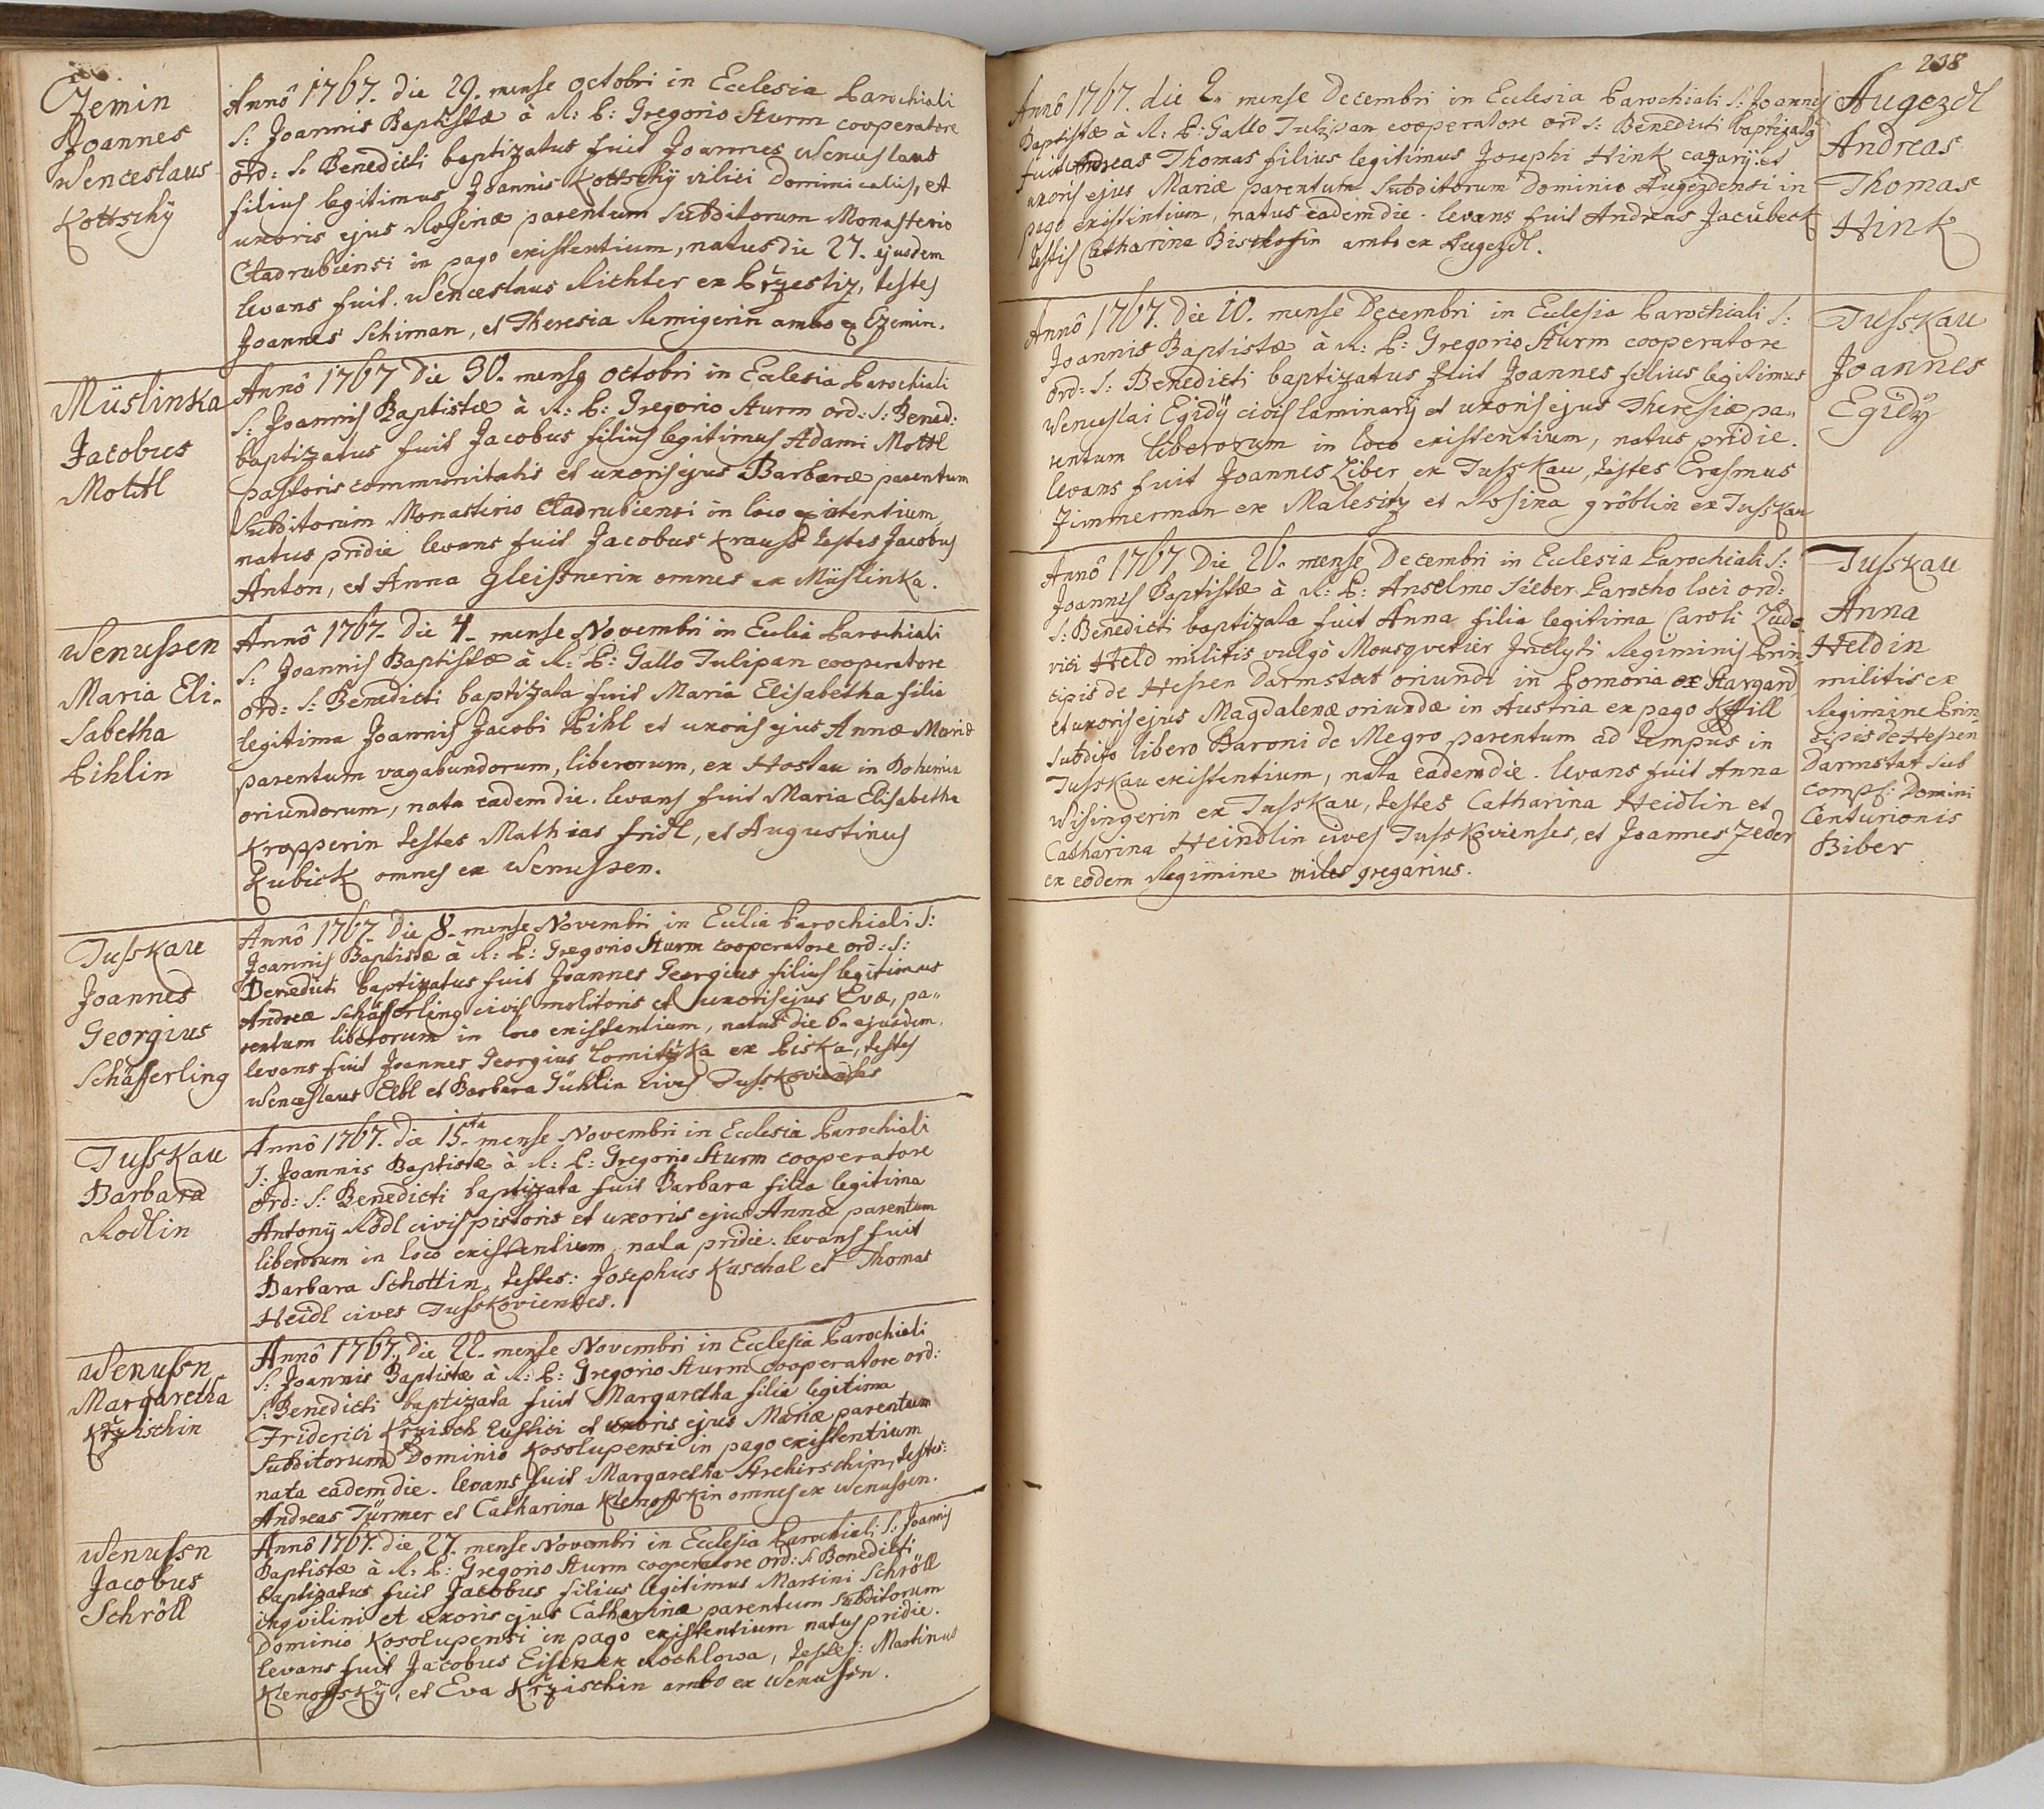 Czemin
Joannes
Wenceslaus
Kottschÿ
Annô 1767. die 29. mense octobri in Ecclesia Parochiali
S: Joannis Baptistæ à R: P: Gregorio Sturm cooperatore
ord: S: Benedicti baptizatus fuit Joannes Wenceslaus
filius legitimus Joannis Kottschÿ vilici Dominicalis, et
uxoris ejus Rosinæ parentum subditorum Monasterio
Cladrubiensi in pago existentium, natus die 27. ejusdem
levans fuit. Wenceslaus Richter ex Przestiz, testes
Joannes Schiman, et Theresia Remigerin ambo ex Czemin.
Müslinka
Jacobus
Mottl
Annô 1767 Die 30. mense octobri in Ecclesia Parochiali
S: Joannis Baptistæ à R: P: Gregorio Sturm ord: S: Bened:
baptizatus fuit Jacobus filius legitimus Adami Mottl
pastoris communitatis et uxoris ejus Barbaræ parentum
subditorum Monasterio Cladrubiensi in loco existentium,
natus pridie levans fuit Jacobus Krauss testes Jacobus
Anton, et Anna Gleissnerin omnes ex Müslinka.
Wenussen
Maria Eli-
sabetha
Pihlin
Annô 1767. Die 4. mense Novembri in Ecclia Parochiali
S: Joannis Baptistæ à R: P: Gallo Tulipan cooperatore
ord: S: Benedicti baptizata fuit Maria Elisabetha filia
legitima Joannis Jacobi Pihl et uxoris ejus Annæ Mariæ
parentum vagabundorum, liberorum, ex Hostau in Bohemia
oriundorum, nata eadem die. levans fuit Maria Elisabetha
Kropperin testes Mathias fridl, et Augustinus
Kubick omnes ex Wenussen.
Tusskau
Joannes
Georgius
Schäfferling
Annô 1767. Die 8. mense Novembri in Ecclia Parochiali S:
Joannis Baptistæ à R: P: Gregorio Sturm cooperatore ord: S:
Benedicti baptizatus fuit Joannes Georgius filius legitimus
Andreæ Schäfferling civis molitoris et uxoris ejus Evæ, pa„
rentum liberorum in loco existentium, natus die 6. ejusdem.
levans fuit Joannes Georgius ex Piska, testes
Wenceslaus Elbl et Barbara Tühlin cives Tusskovienses
Tusskau
Barbara
Rodlin
Annô 1767. die 15.ta mense Novembri in Ecclesia Parochiali
S: Joannis Baptistæ à R: P: Gregorio Sturm cooperatore
ord: S: Benedicti baptizata fuit Barbara filia legitima
Antonÿ Rödl civis pistoris et uxoris ejus Annæ parentum
liberorum in loco existentium nata pridie. levans fuit
Barbara Schottin, testes: Josephus Kuschal et Thomas
Heidl cives Tusskovienses.
Wenussn
Margaretha
Krzischin
Annô 1767. Die 22. mense Novembri in Ecclesia Parochiali
S: Joannis Baptistæ à R: P: Gregorio Sturm Cooperatore ord:
S: Benedicti baptizata fuit Margaretha filia legitima
Friderici Krzisch rustici et uxoris ejus Mariæ parentum
subditorum Dominio Kosolupensi in pago existentium
nata eâdem die. levans fuit Margaretha Strehirschin, testes:
Andreas Türmer et Catharina Klenoffskin omnes ex Wenussen.
Wenussn
Jacobus
Schröll
Annô 1767. die 27. mense Novembri in Ecclesia Parochiali S: Joannis
Baptistæ à R: P: Gregorio Sturm cooperatore ord: S: Benedicti
baptizatus fuit Jacobus filius legitimus Martini Schröll
inqvilini et uxoris ejus Catharinæ parentum subditorum
Dominio Kosolupensi in pago existentium natus pridie.
levans fuit Jacobus Eisen ex Rochlowa, testes: Martinus
Klenoffskÿ, et Eva Krzischin ambo ex Wenussn.
238
Annô 1767. die 2. mense Decembri in Ecclesia Parochiali S: Joannis
Baptistæ à R: P: Gallo Tulipan cooperatore ord S: Benedicti baptizatus
fuit Andreas Thomas filius legitimus Josephi Hink cazarÿ et
uxoris ejus Mariæ parentum subditorum Dominio Augezdensi in
pago existintium, natus eadem die. levans fuit Andreas Jacubeck
testis Catharina Bischofin ambo ex Augezdl.
Augezdl
Andreas
Thomas
Hink
Annô 1767. Die 10. mense Decembri in Ecclesia Parochiali S:
Joannis Baptistæ à R: P: Gregorio Sturm cooperatore
ord: S: Benedicti baptizatus fuit Joannes filius legitimus
Wenceslai Egidÿ civis laminarÿ et uxoris ejus Theresiæ pa„
rentum liberorum in loco existentium, natus pridie.
levans fuit Joannes Liber ex Tusskau, testes Erasmus
Zimmerman ex Malesitz et Rosina gröblin ex Tusskau
Tusskau
Joannes
Egidÿ
Annô 1767. Die 26. mense Decembri in Ecclesia Parochiali S:
Joannis Baptistæ à R: P: Anselmo Sieber Parocho loci ord:
S: Benedicti baptizata fuit Anna filia legitima Caroli Ludo
vici Held militis vulgò Mousqvetier Inclyti Regiminis Prin„
cipis de Hessen Darmstat oriundi in Pomeria ex Stargard
et uxoris ejus Magdalenæ oriundæ in Austria ex pago
subdito libero Baroni de Megro parentum ad tempus in
Tusskau existentium, nata eadem die. levans fuit Anna
Wisingerin ex Tusskau, testes Catharina Heidlin et
Catharina Heindlin cives Tusskovienses, et Joannes Zeder
ex eodem Regimine miles gregarius.
Tusskau
Anna
Heldin
militis ex
Regimine Prin„
cipis de Hessen
Darmstat sub
comp: Domini
Centurionis
Biber